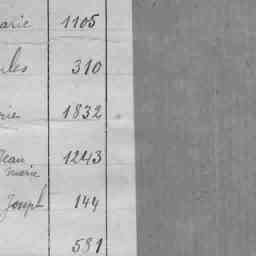 arie 1105
ules 310
rie 1832
Jean marie 1243
Joseph 144
581